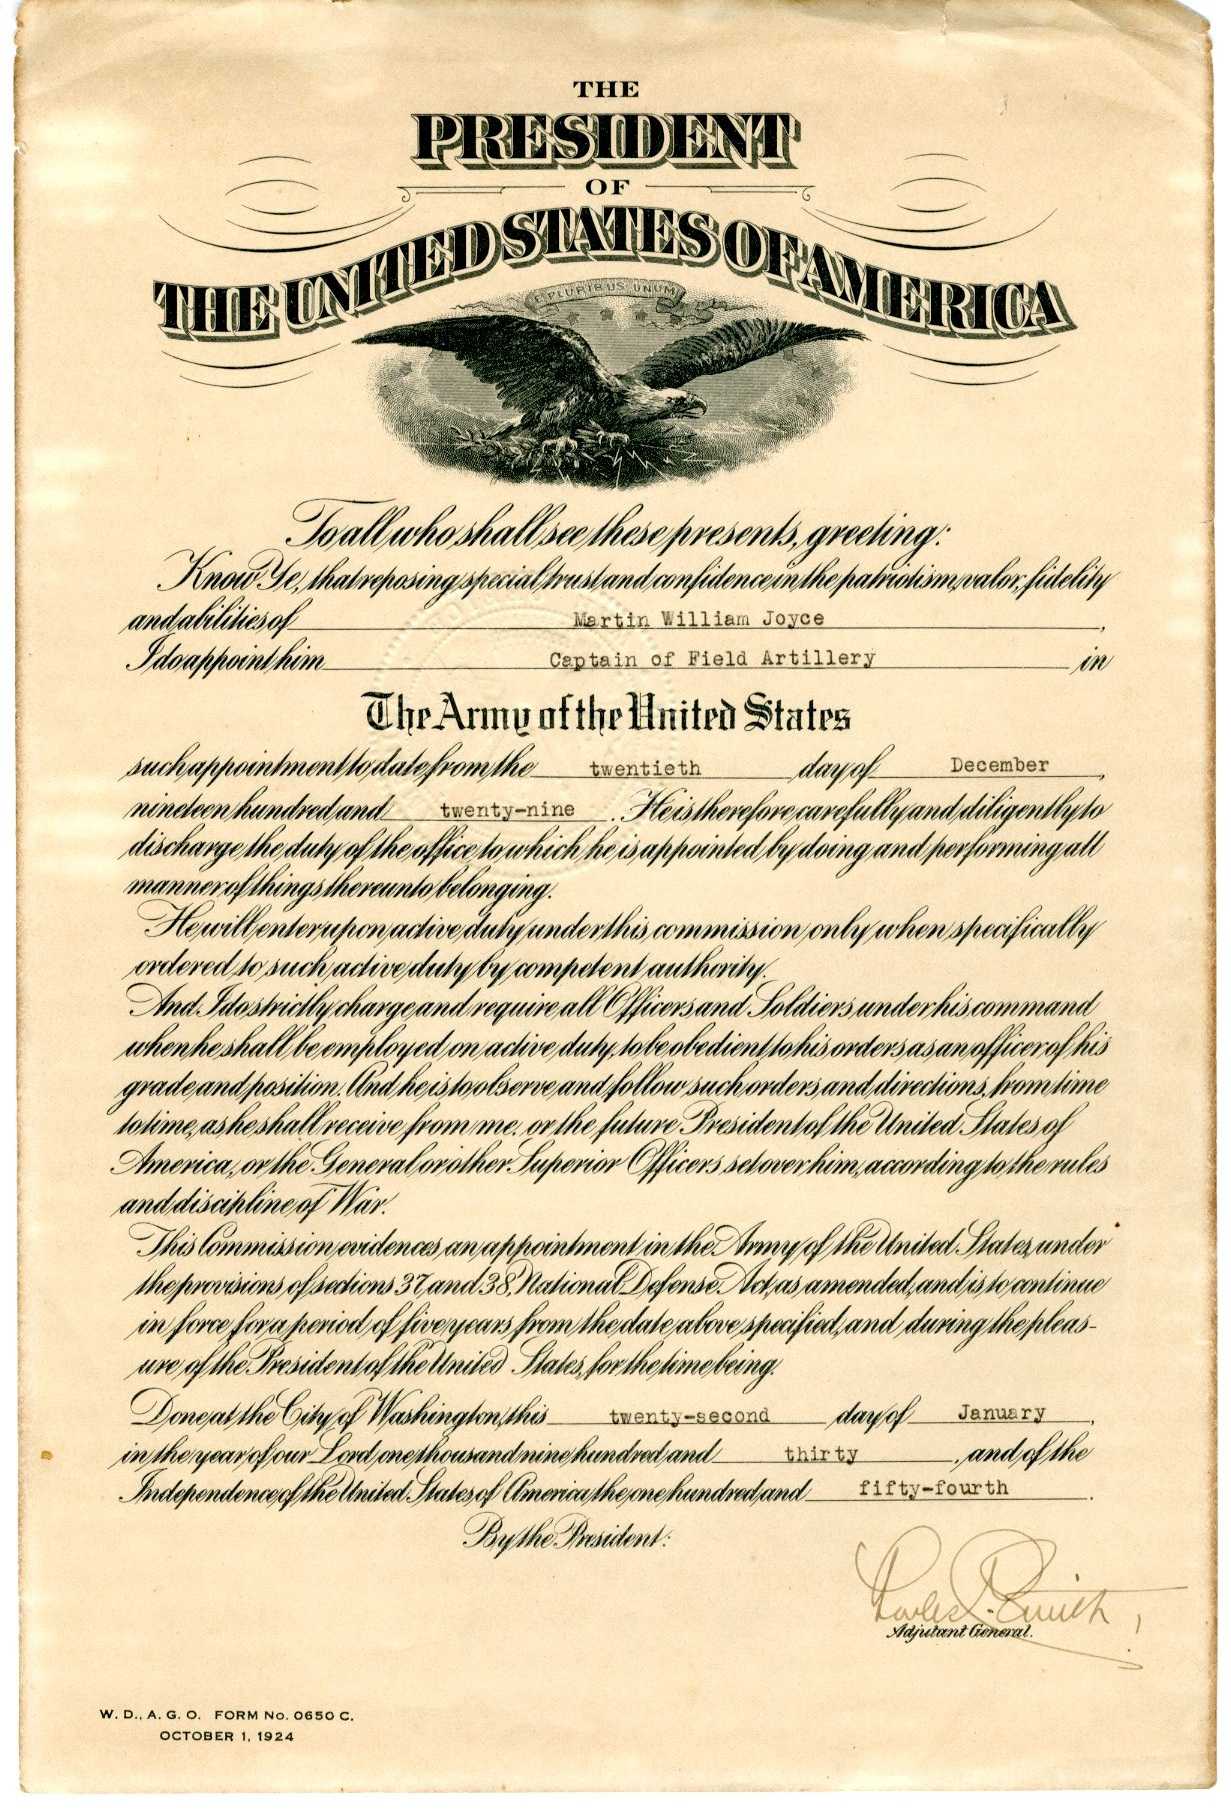 THE
PRESIDENT
OF
THE UNITED STATES OF AMERICA
E PLURIBUS UNUM
To all who shall see these presents, greeting:
Know Ye, that reposing special trust and confidence in the patriotism, valor, fidelity
and abilities of Martin William Joyce,
I do appoint him Captain of Field Artillery in
The Army of the United States
such appointment to date from the twentieth day of December,
nineteen hundred and twenty-nine. He is therefore carefully and diligently to
discharge the duty of the office to which he is appointed by doing and performing all
manner of things thereunto belonging.
He will enter upon active duty under this commission only when specifically
ordered to such active duty by competent authority.
And I do strictly charge and require all Officers and Soldiers under his command
when he shall be employed on active duty, to be obedient to his orders as an officer of his
grade and position. And he is to observe and follow such orders and directions, from time
to time, as he shall receive from me, or the future President of the United States of
America, or the General or other Superior Officers set over him, according to the rules
and discipline of War.
This Commission evidences an appointment in the Army of the United States, under
the provisions of sections 37 and 38, National Defense Act, as amended, and is to continue
in force for a period of five years from the date above specified, and during the pleas-
ure of the President of the United States, for the time being.
Done at the City of Washington, this twenty-second day of January,
in the year of our Lord one thousand nine hundred and thirty, and of the
Independence of the United States of America the one hundred and fifty-fourth.
By the President:
Adjutant General.
W. D., A. G. O. FORM No. 0650 C.
OCTOBER 1, 1924